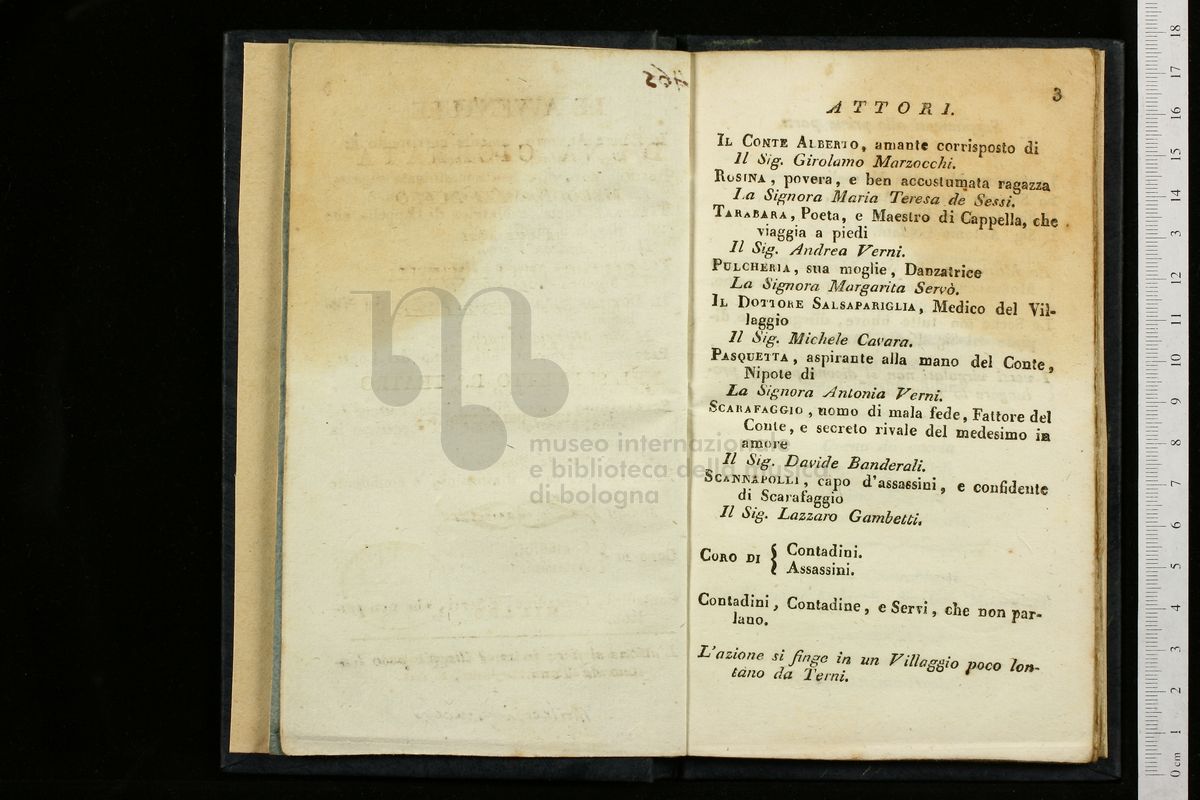 3
ATTORI.
Il Conte Alberto, amante corrisposto di
Il Sig. Girolamo Marzocchi.
Rosina, povera, e ben accostumata ragazza
La Signora Maria Teresa de Sessi.
Tarabara, Poeta, e Maestro di Cappella, che
viaggia a piedi
Il Sig. Andrea Verni.
Pulcheria, sua moglie, Danzatrice
La Signora Margarita Servò.
Il Dottore Salsapariglia, Medico del Vil-
laggio
Il Sig. Michele Cavara.
Pasquetta, aspirante alla mano del Conte,
Nipote di
La Signora Antonia Verni.
Scarafaggio, uomo di mala fede, Fattore del
Conte, e secreto rivale del medesimo in
amore
Il Sig. Davide Banderali.
Scannapolli, capo d'assassini, e confidente
di Scarafaggio
Il Sig. Lazzaro Gambetti.
Coro di { Contadini.
Assassini.
Contadini, Contadine, e Servi, che non par-
lano.
L'azione si finge in un Villaggio poco lon-
tano da Terni.
museo internazionale
e biblioteca della musica
di bologna
0 cm 1 2 3 4 5 6 7 8 9 10 11 12 13 14 15 16 17 18